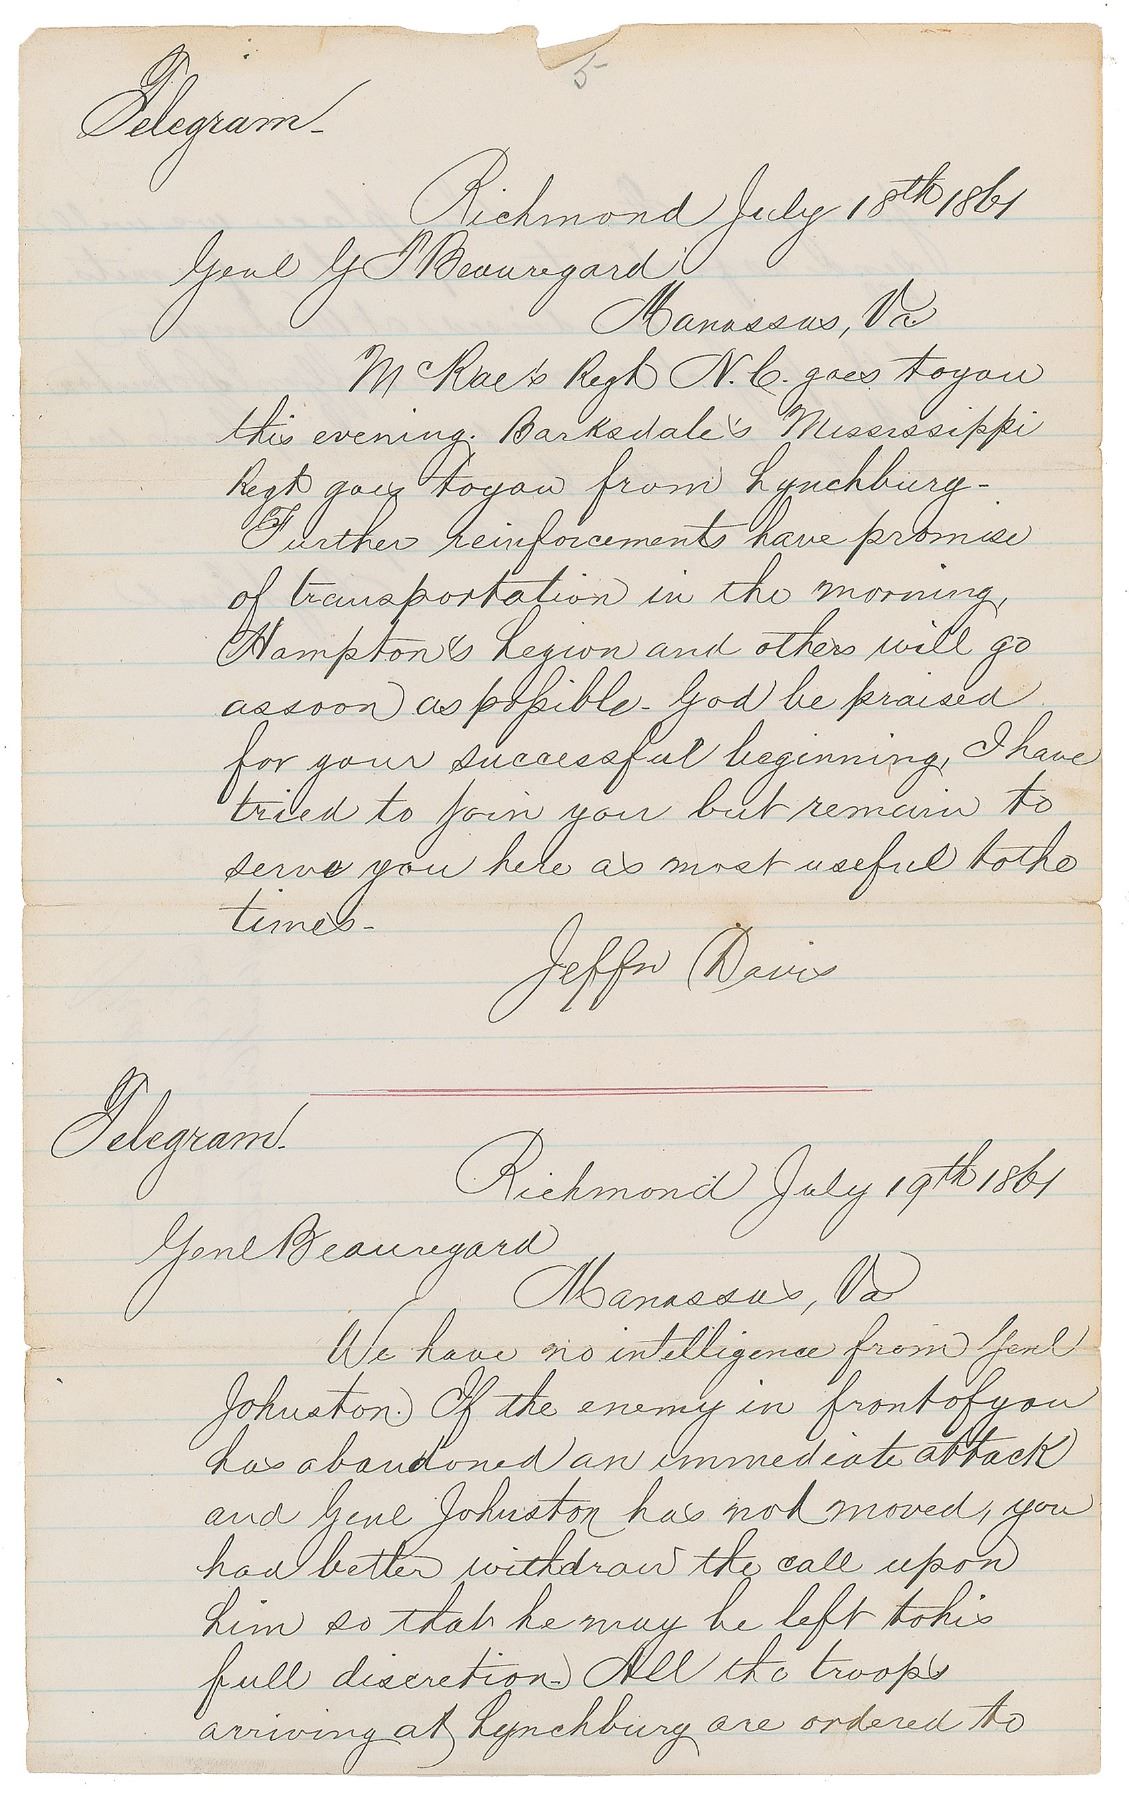 5
Telegram-
Richmond July 18th 1861
Genl G T Beauregard
Manassas, Va
McRae's Regt N.C. goes to you
this evening. Barksdale's Mississippi
Regt goes to you from Lynchburg-
Further reinforcements have promise
of transportation in the morning,
Hampton's Legion and others will go
as soon as possible- God be praised
for your successful beginning, I have
tried to join you but remain to
serve you here as most useful to the
times-
Jeffn Davis
Telegram.
Richmond July 19th 1861
Genl Beauregard
Manassas, Va
We have no intelligence from Genl
Johnston. If the enemy in front of you
has abandoned an immediate attack
and Genl Johnston has not moved, you
had better withdraw the call upon
him so that he may be left to his
full discretion- All the troops
arriving at Lynchburg are ordered to